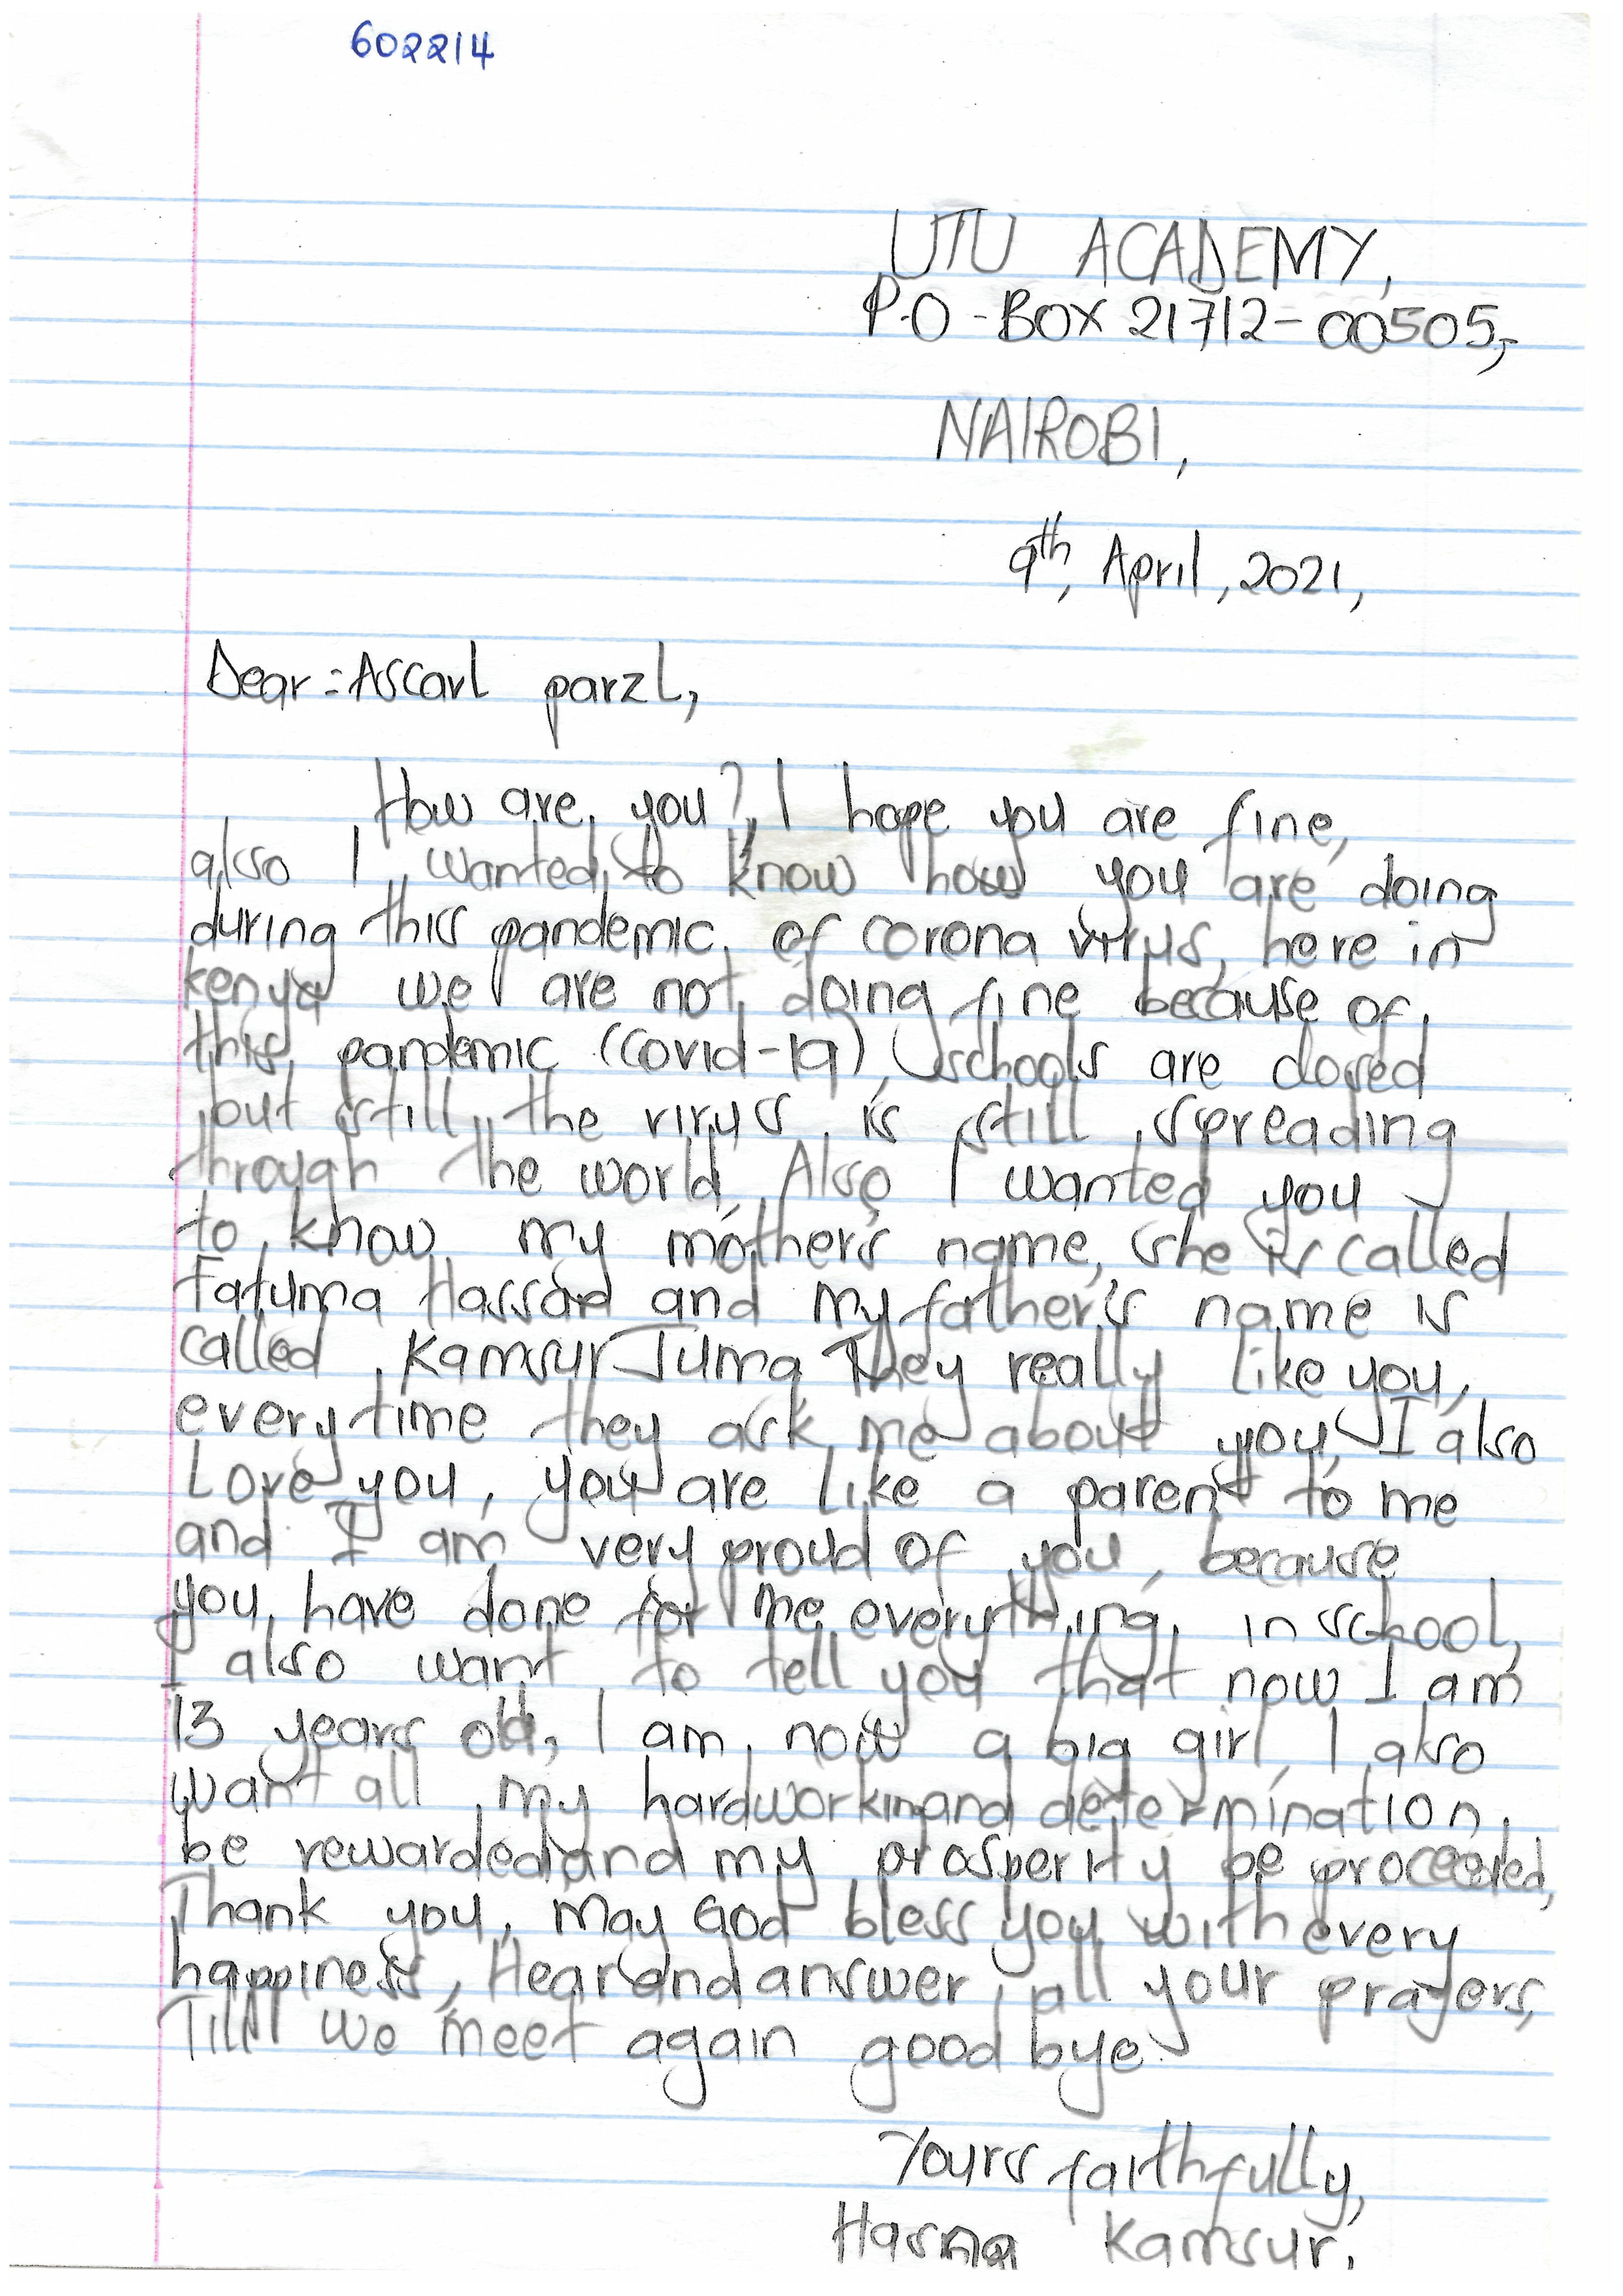 602214
UTU ACADEMY,
P.O - BOX 21712-00505,
NAIROBI,
9th, April, 2021,
Dear = Ascarl parzl,
How are you? I hope you are fine,
also I wanted to know how you are doing
during this pandemic of corona virus, here in
kenya we are not doing fine because of
this pandemic (Covid-19), schools are closed
but still the virus is still spreading
through the world. Also I wanted you
to know my mother's name, she is called
Fatuma Hassan and my father's name is
called Kamsur Juma They really like you,
everytime they ask me about you, I also
Love you, you are like a parent to me
and I am very proud of you, because
you have done for me everything in school,
I also want to tell you that now I am
13 years old, I am now a big girl I also
want all my hardworkinand determination
be rewarded and my prosperity be proceeded,
Thank you, May God bless you with every
happiness, Hear and answer all your prayers,
Till we meet again good bye
Yours faithfully,
Hasna Kamsur.